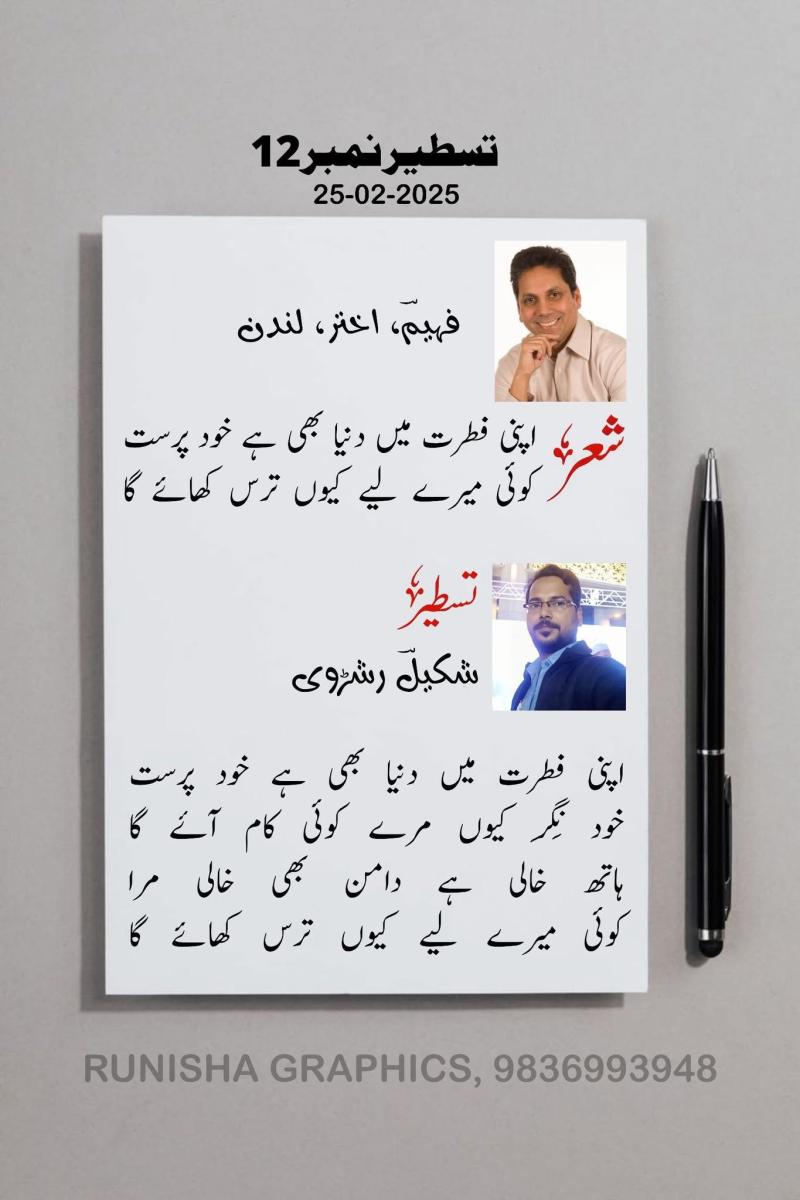 تسطیر نمبر 12
25-02-2025
فہیمؔ، اختر، لندن
شعر
اپنی فطرت میں دنیا بھی ہے خود پرست
کوئی میرے لیے کیوں ترس کھائے گا
تسطیر
شکیلؔ رشڑوی
اپنی فطرت میں دنیا بھی ہے خود پرست
خود نِگر کیوں مرے کوئی کام آئے گا
ہاتھ خالی ہے دامن بھی خالی مرا
کوئی میرے لیے کیوں ترس کھائے گا
RUNISHA GRAPHICS, 9836993948